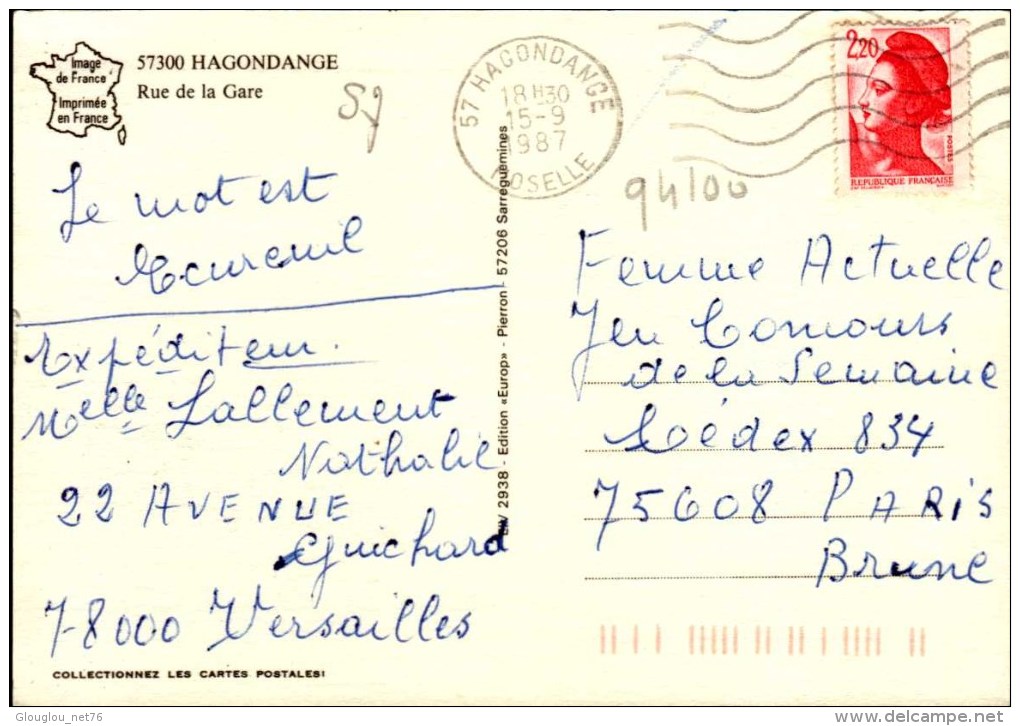 Image
de France
Imprimée
en France
57300 HAGONDANGE
Rue de la Gare
57 HAGONDANGE
18H30
15-9
1987
MOSELLE
2,20
POSTES
REPUBLIQUE FRANÇAISE
94100
Le mot est
Ecureuil
Expéditeur.
Melle Lallement
Nathalie
22 AVENUE
Guichard
78000 Versailles
COLLECTIONNEZ LES CARTES POSTALES!
2938 - Edition «Europ» - Pierron - 57206 Sarreguemines
Femme Actuelle
Jeu Concours
de la Semaine
Cédex 834
75608 PARIS
Brune
Glouglou_net76
delcampe.net